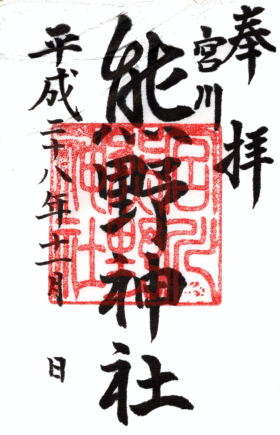 奉拝
宮川
熊野神社
平成二十八年十一月 日